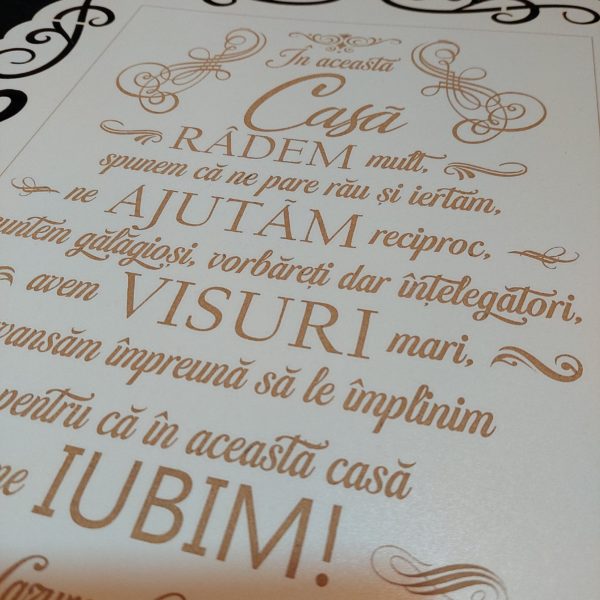 În aceasta
Casă
RÂDEM mult,
spunem că ne pare rău și iertăm,
ne AJUTĂM reciproc,
suntem gălăgioși, vorbăreți dar înțelegători,
avem VISURI mari,
avansăm împreună să le împlinim
pentru că în aceasta casă
ne IUBIM!